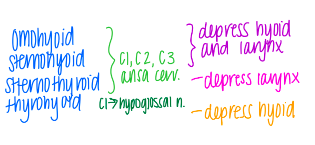 omohyoid
sternohyoid
sternothyroid
thyrohyoid
C1, C2, C3
ansa cerv.
C1→hypoglossal n.
depress hyoid
and larynx
- depress larynx
- depress hyoid